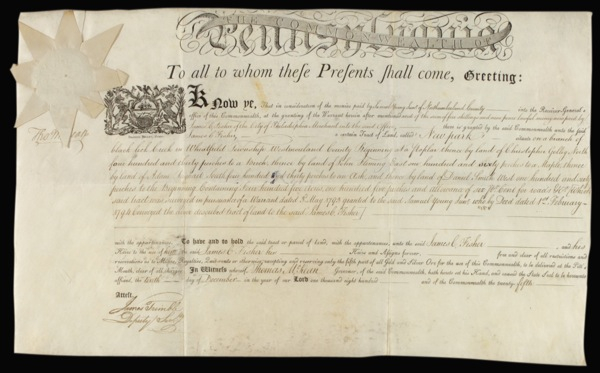 THE COMMONWEALTH OF
Pennsylvania
To all to whom these Presents shall come, Greeting:
Know ye, That in consideration of the monies paid by Samuel Young late of Northumberland County into the Receiver-General's
office of this Commonwealth, at the granting of the Warrant herein after mentioned and of the sum of five shillings and money paid by
James C Fisher of the City of Philadelphia Merchant into the said Office there is granted by the said Commonwealth unto the said
James C Fisher a certain Tract of Land, called New park situate on a branch of
black lick Creek in Wheatfield Township Westmoreland County Beginning at a Poplar thence by land of Christopher North
four hundred and thirty perches to a Beech thence by land of John Fleming East one hundred and sixty perches to a Maple thence
by land of Adam South four hundred and thirty perches to an Ash, and thence by land of Daniel West one hundred and sixty
perches to the Beginning Containing four hundred five Acres, one hundred five perches and allowance of six P Cent for roads &c which
said tract was surveyed in pursuance of a Warrant dated 8 May 1793 granted to the said Samuel Young who by Deed dated 12 February
1794 Conveyed the above described tract of land to the said James C Fisher
with the appurtenances. To have and to hold the said tract or parcel of land, with the appurtenances unto the said James C Fisher and his
Heirs to the use of him the said James C Fisher his Heirs and Assigns forever, free and clear of all restrictions and
reservations as to Mines, Royalties, Quit-rents or otherwise, excepting and reserving only the fifth part of all Gold and Silver Ore for the use of this Commonwealth, to be delivered at the Pit's
Mouth, clear of all charges. In Witness whereof, Thomas McKean Governor, of the said Commonwealth, hath hereto set his Hand, and caused the State Seal to be hereunto
affixed the tenth day of December in the year of our Lord one thousand eight hundred and of the Commonwealth the twenty fifth
Attest:
James Trimble
Deputy Secy